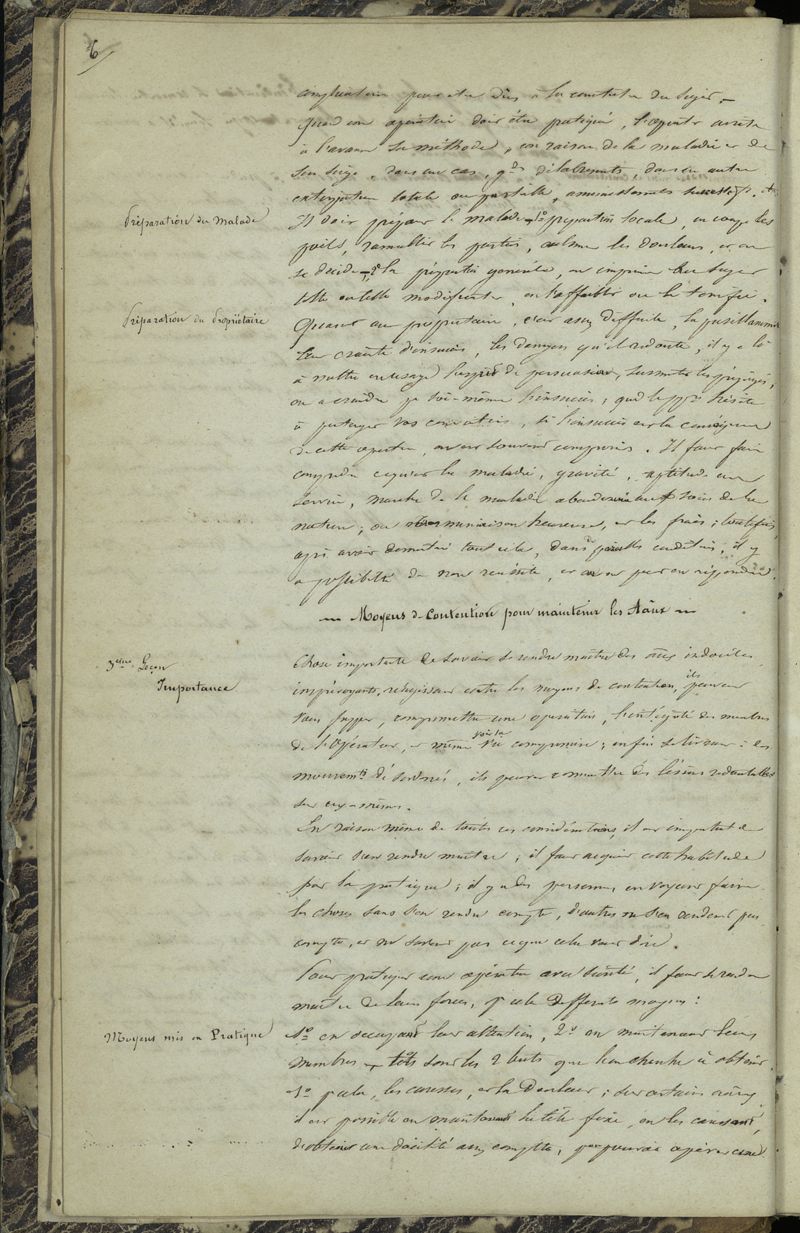 6/
complication peuvent dûs à la constitution du sujet.
Quand une opération doit être pratiquée, l'opérateur arrête
à l'avance sa méthode, en raison de la maladie et de
son siège, dans un cas, gds délabrements, dans un autre
extirpation totale ou partielle,
Préparation du Malade
Il doit préparer le malade, 1o préparation locale, on coupe les
poils, ramollir les parties, calmer les douleurs, et on
se décide, 2o la préparation générale, on imprime au sujet
telle ou telle modification en l'affaiblir ou le tonifier.
Préparation du Propriétaire
Quant au propriétaire, c'est assez difficile, la pusillanimité
leur crainte d'insuccès, les dangers qu'il redoute, il y a là
à mettre en usage l'esprit de persuasion, surmonter les préjugés,
on a craindre pr soi-même l'insuccès, quand le ppre hésite
à partager vos convictions, si l'insuccès est la conséquence
de cette opération, on est souvent compromis. Il faut faire
comprendre ce qu'est la maladie, gravité, aptitude au
service, marche de la maladie abandonnée aux soins de la
nature; ou terminaison heureuse, et les frais;
après avoir démontré tout cela, dans pareilles conditions, il y
a possibilité de non réussite, et on ne peut en répondre.
Moyens de Contention pour maintenir les Anx
3ème Leçon
Importance
Chose importante de savoir se rendre maître des anx indociles,
imprévoyants, réagissant contre les moyens de contention, ils peuvent
vous frapper, compromettre une opération, l'intégrité des membres
de l'Opérateur, et même sa vie compromise; enfin se livrant à des
mouvemts désordonnés, ils peuvent commettre des lésions redoutables
sur eux-mêmes.
En raison même de toutes ces considérations, il est important de
savoir s'en rendre maître; il faut acquérir cette habitude
par la pratique; il y a des personnes, en voyant faire
les choses sans s'en rendre compte, d'autres ne s'en rendent pas
compte, et ne savent pas ce que cela veut dire.
Pour pratiquer une opération avec sûreté, il faut se rendre
maître de leurs forces, pr cela différents moyens:
Moyens mis en Pratique
1o en occupant leur attention, 2o en maintenant leurs
membres, tels sont les 2 buts que l'on cherche à obtenir.
1o pr cela, les caresses, et la Douleur; sur certains anx
il est possible en maintenant la tête fixe, en les caressant,
d'obtenir une docilité assez complète, pr pouvoir opérer